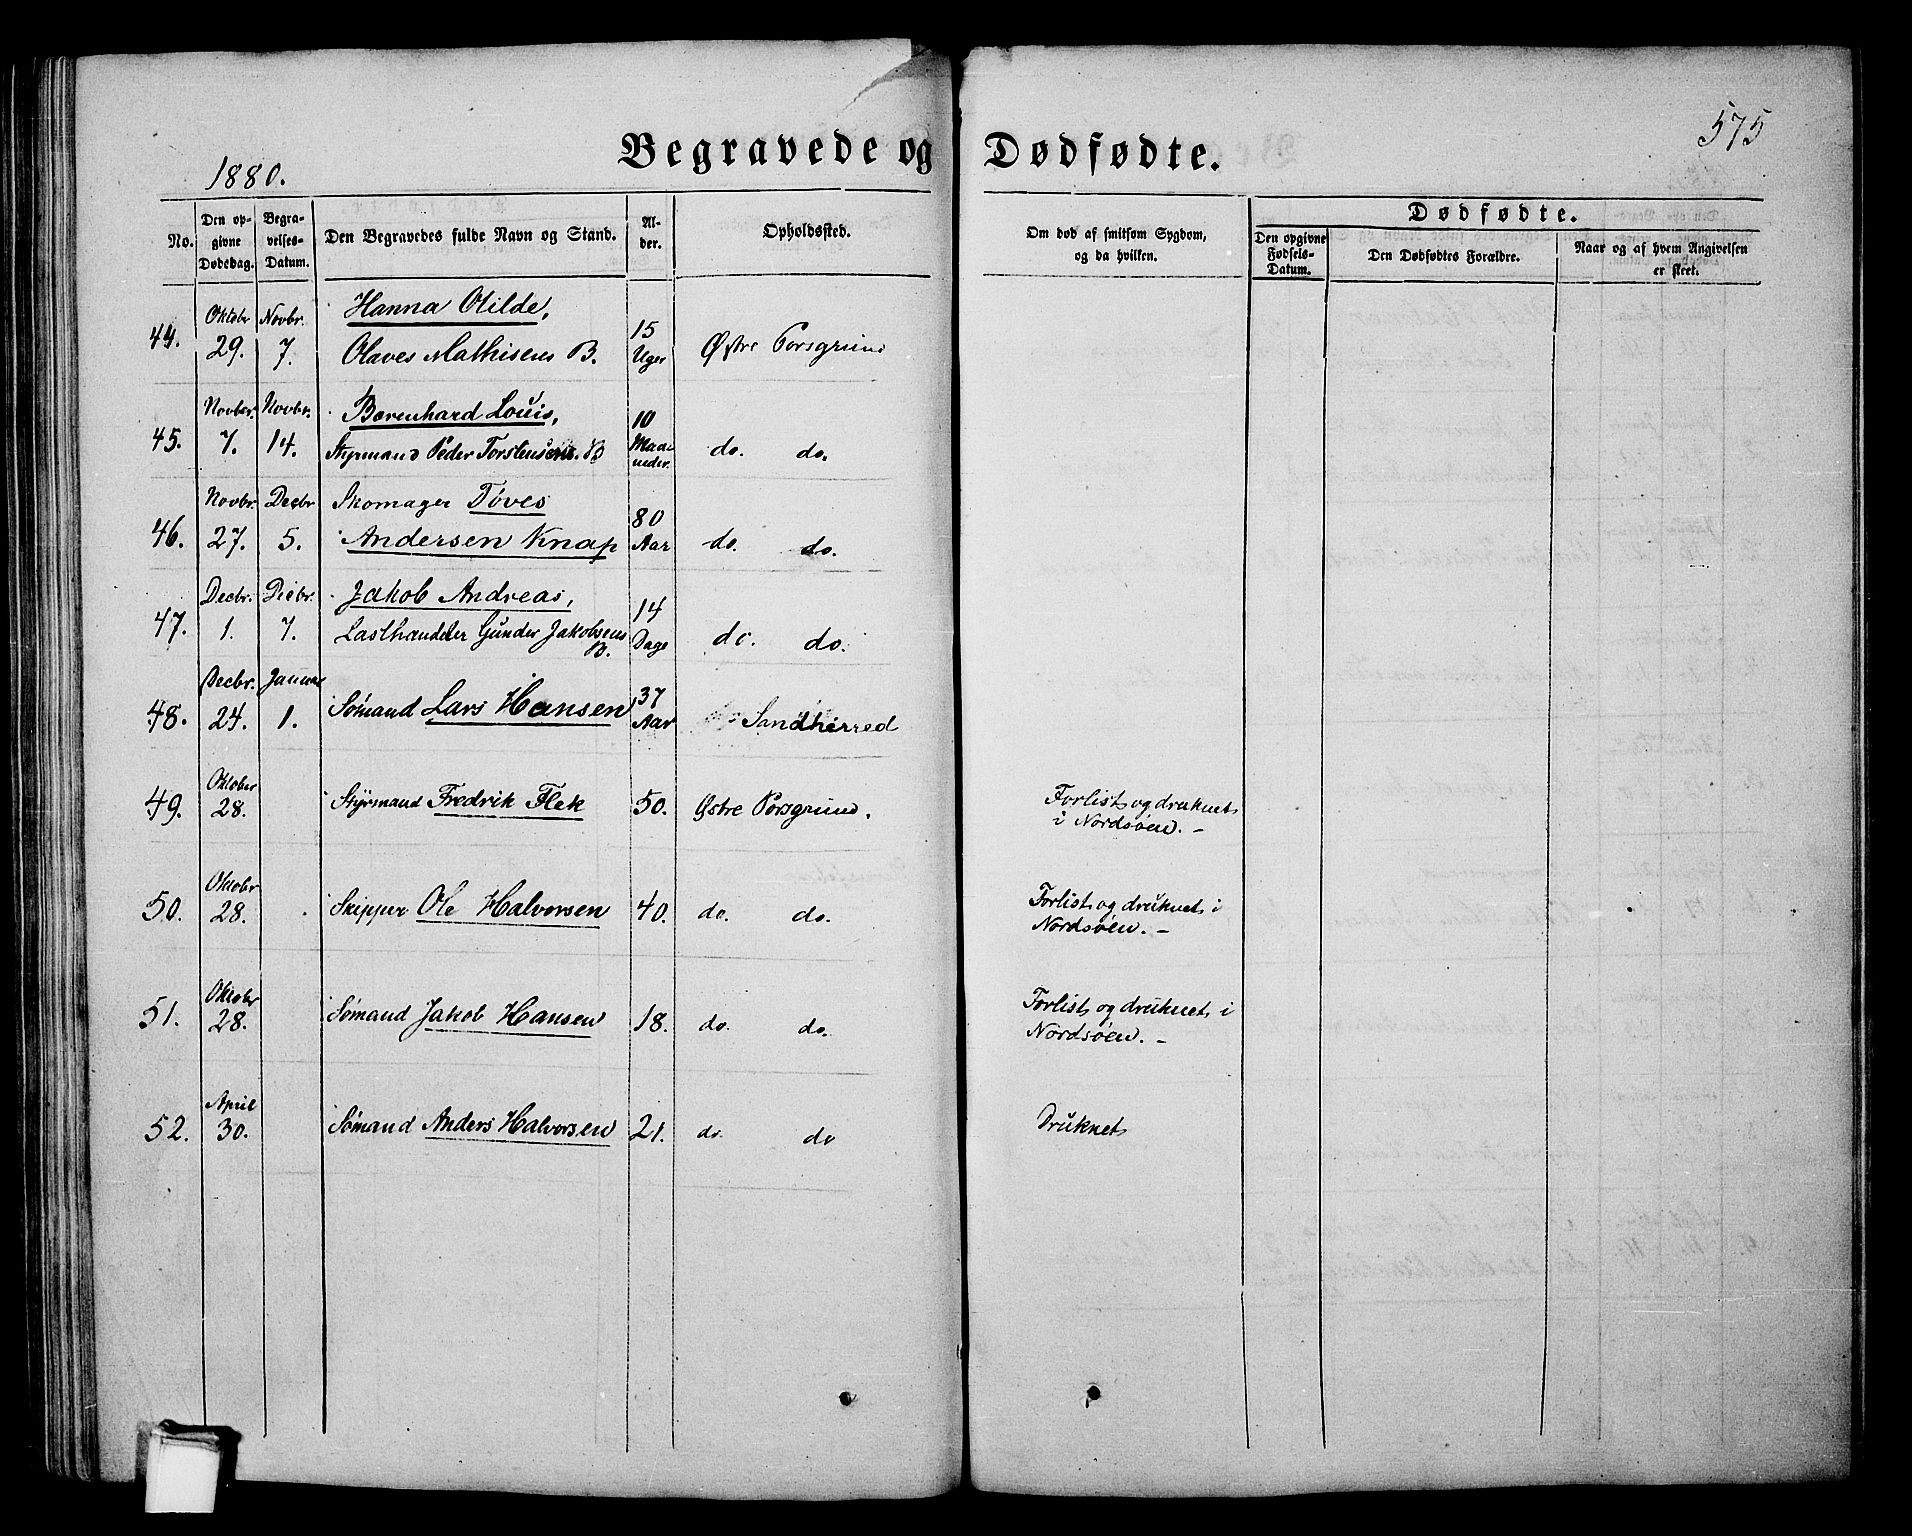 575
Begravede og Dødfødte.
1880.
No.
Den op-
givne
Dødsdag.
Begra-
velses-
Datum.
Den Begravedes fulde Navn og Stand.
Al-
der.
Opholdssted.
Om død af smitsom Sygdom,
og da hvilken.
Dødfødte.
Den opgivne
Fødsels-
Datum.
Den Dødfødtes Forældre.
Naar og af hvem Angivelsen
er skeet.
44. Oktobr 29. Novbr. 7. Hanna Olilde,
Olaves Mathisens B. 15 Uger Østre Porsgrund
45. Novber. 7. Novbr. 14. Berenhard Louis,
Styrmand Peder Torstensens. B 10 Maaneder. do. do.
46. Novbr. 27. Decbr 5. Skomager Töves
Andersen Knap 80 Aar do. do.
47. Decbr. 1. Decbr. 7. Jakob Andreas,
Lasthandler Gunder Jakobsens
B. 14 Dage do. do.
48. Decbr. 24. Januar 1. Sømand Lars Hansen 37 Aar Sandherred
49. Oktober 28. Styrmand Fredrik Flek 50. Østre Porsgrund. Forlist og druknet
i Nordsøen. –
50. Oktobr 28. Skipper Ole Halvorsen 40. do. do. Forlist og druknet i
Nordsøen. –
51. Oktobr 28. Sømand Jakob Hansen 18. do. do. Forlist og druknet i
Nordsøen. –
52. April 30. Sømand Anders Halvorsen 21. do. do Druknet